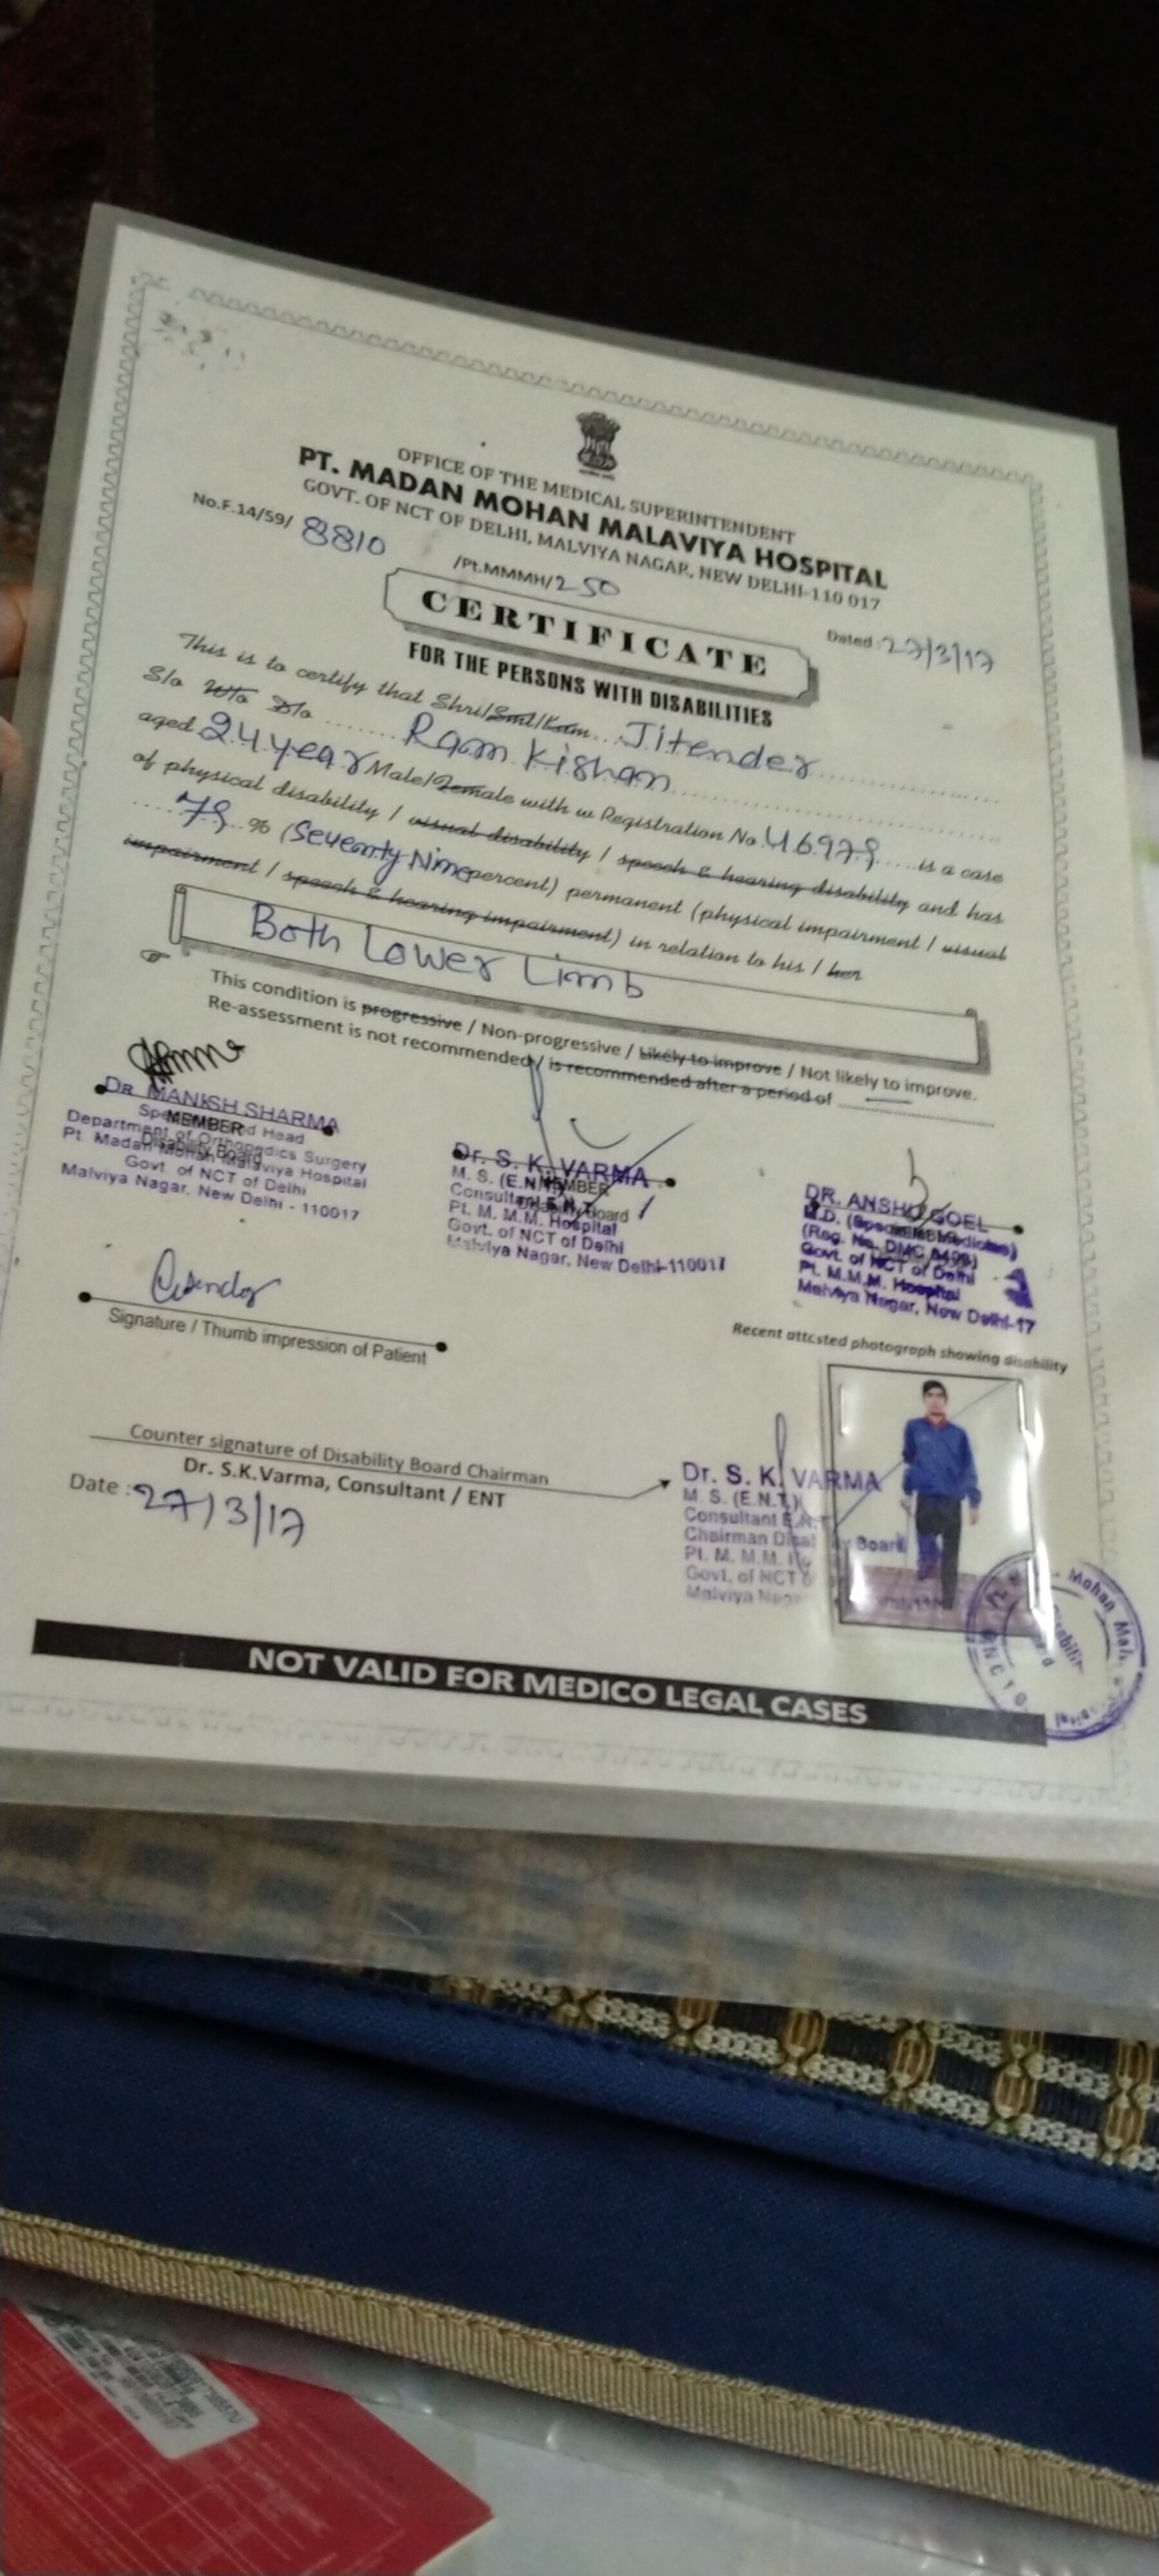 OFFICE OF THE MEDICAL SUPERINTENDENT
PT. MADAN MOHAN MALAVIYA HOSPITAL
GOVT. OF NCT OF DELHI, MALVIYA NAGAR, NEW DELHI-110 017
No.F.14/59/ 8810 /Pt.MMMH/250
Dated 27/3/17
CERTIFICATE
FOR THE PERSONS WITH DISABILITIES
This is to certify that Shri/Smt/Kum... Jitender
S/o W/o D/o ....... Ram Kishan
aged 24 year Male/Female with w Registration No. 46979 is a case
of physical disability / visual disability / speech & hearing disability and has
79 % (Seventy Nine percent) permanent (physical impairment / visual
impairment / speech & hearing impairment) in relation to his / her
Both Lower Limb
This condition is progressive / Non-progressive / Likely to improve / Not likely to improve.
Re-assessment is not recommended / is recommended after a period of
Dr. MANISH SHARMA
MEMBER
Disability Board
Department of Orthopedics Surgery
Pt. Madan Mohan Malaviya Hospital
Govt. of NCT of Delhi
Malviya Nagar, New Delhi - 110017
Dr. S. K. VARMA
MEMBER
M. S. (E.N.T.)
Consultant E.N.T.
Pt. M. M. M. Hospital
Govt. of NCT of Delhi
Malviya Nagar, New Delhi-110017
DR. ANSHU GOEL
Govt. of NCT of Delhi
Pt. M.M.M. Hospital
Malviya Nagar, New Delhi-17
Signature / Thumb impression of Patient
Recent attested photograph showing disability
Counter signature of Disability Board Chairman
Dr. S.K.Varma, Consultant / ENT
Date : 27/3/17
Dr. S. K. VARMA
M. S. (E.N.T.)
Consultant E.N.T
Chairman Board
Pt. M. M. M.
Govt. of NCT
Malviya
Mohan
NOT VALID FOR MEDICO LEGAL CASES